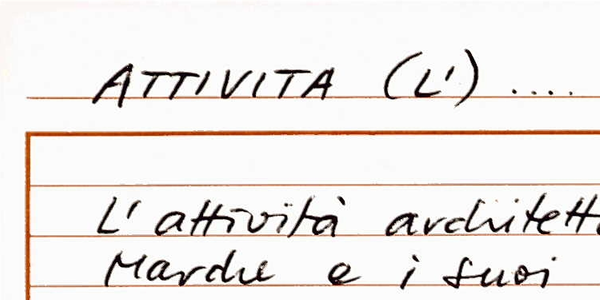 ATTIVITA (L') ....
L'attività architett
Marche e i suoi